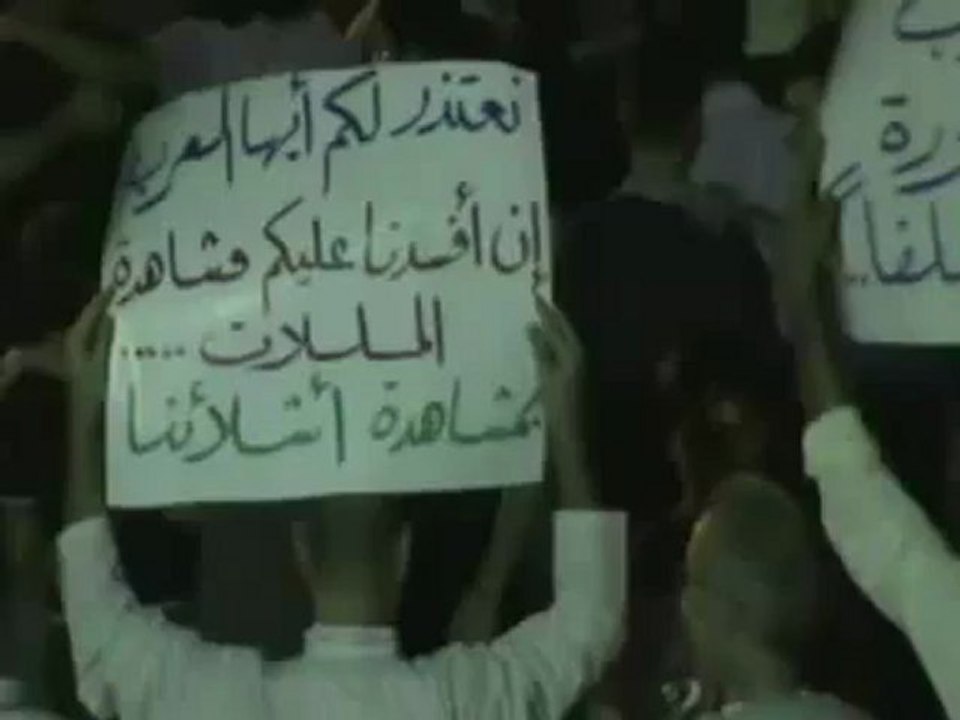 نعتذر لكم أيها العرب
إن أفسدنا عليكم مشاهدة
المسلسلات .....
بمشاهدة أشلائنا
ب
ورة
لفاً..